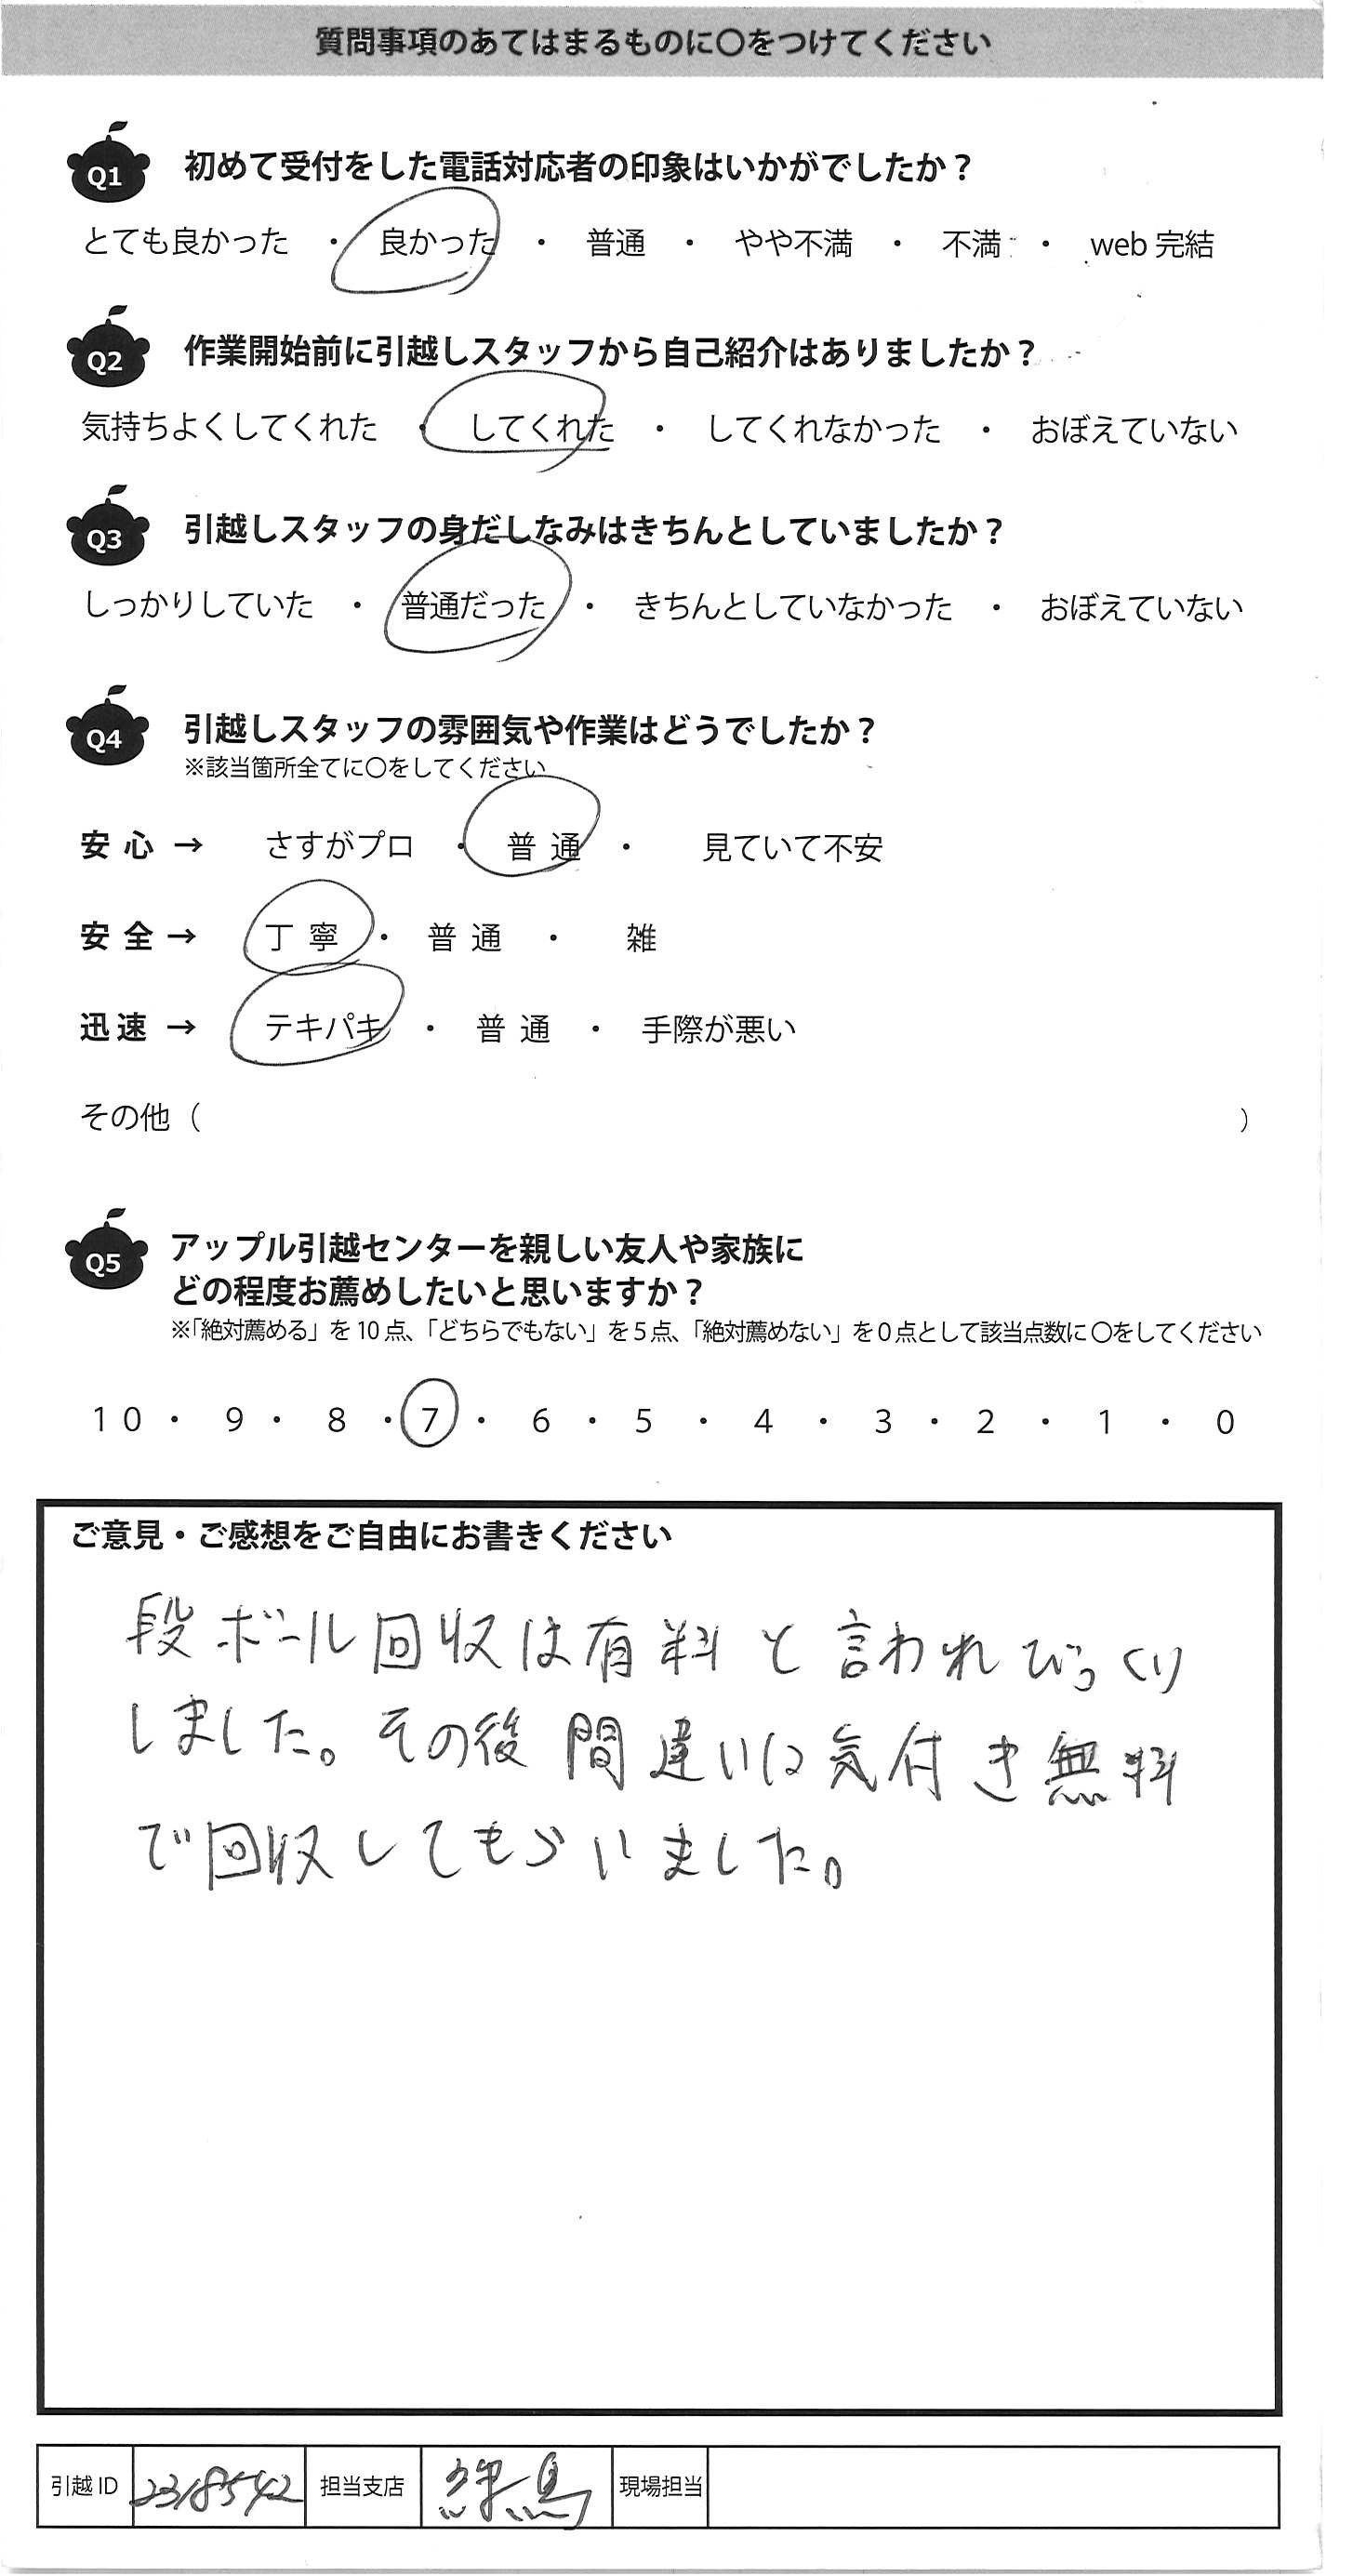 質問事項のあてはまるものに〇をつけてください
Q1 初めて受付をした電話対応者の印象はいかがでしたか？
とても良かった ・ 良かった ・ 普通 ・ やや不満 ・ 不満 ・ web 完結
Q2 作業開始前に引越しスタッフから自己紹介はありましたか？
気持ちよくしてくれた ・ してくれた ・ してくれなかった ・ おぼえていない
Q3 引越しスタッフの身だしなみはきちんとしていましたか？
しっかりしていた ・ 普通だった ・ きちんとしていなかった ・ おぼえていない
Q4 引越しスタッフの雰囲気や作業はどうでしたか？
※該当箇所全てに〇をしてください
安心 → さすがプロ ・ 普通 ・ 見ていて不安
安全 → 丁寧 ・ 普通 ・ 雑
迅速 → テキパキ ・ 普通 ・ 手際が悪い
その他（ ）
Q5 アップル引越センターを親しい友人や家族に
どの程度お薦めしたいと思いますか？
※「絶対薦める」を10点、「どちらでもない」を5点、「絶対薦めない」を0点として該当点数に〇をしてください
10 ・ 9 ・ 8 ・ 7 ・ 6 ・ 5 ・ 4 ・ 3 ・ 2 ・ 1 ・ 0
ご意見・ご感想をご自由にお書きください
段ボール回収は有料と言われびっくり
しました。その後間違いに気付き無料
で回収してもらいました。
引越ID 2318542 担当支店 練馬 現場担当